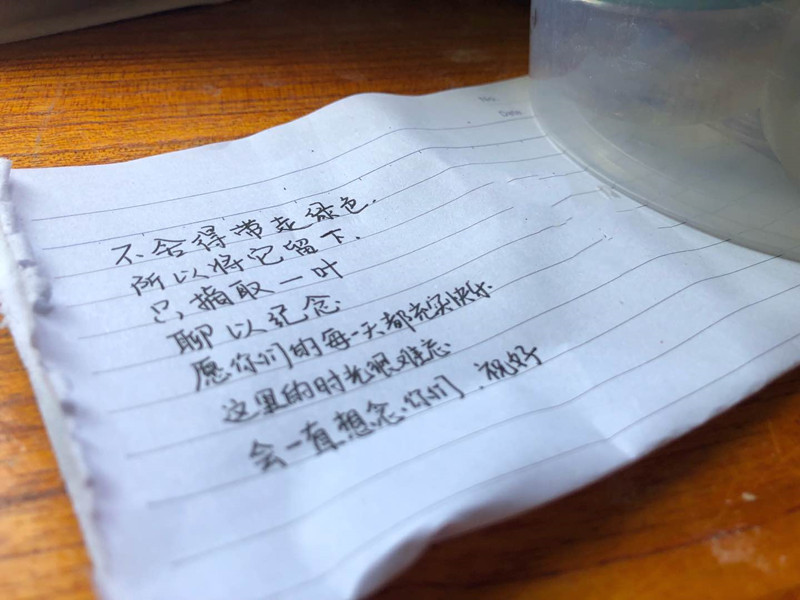 No.
Date
不舍得带走绿色.
所以将它留下.
只摘取一叶
聊以纪念
愿你们的每一天都充实快乐
这里的时光很难忘
会一直想念你们.祝好